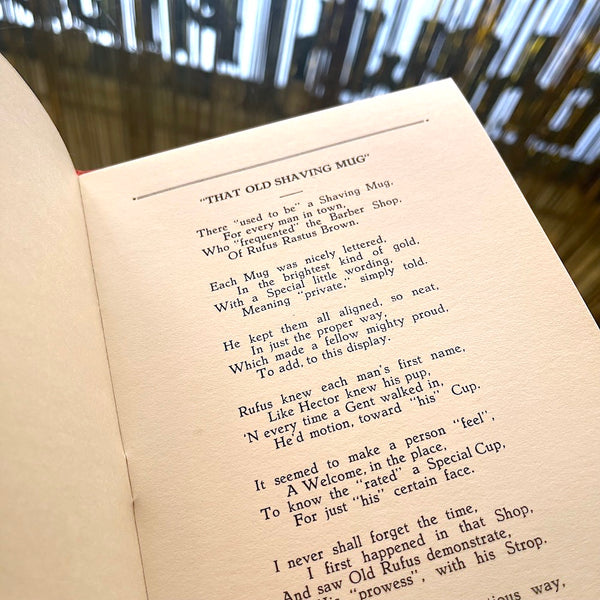 "THAT OLD SHAVING MUG"
There "used to be" a Shaving Mug,
For every man in town,
Who "frequented" the Barber Shop,
Of Rufus Rastus Brown.
Each Mug was nicely lettered,
In the brightest kind of gold,
With a Special little wording,
Meaning "private," simply told.
He kept them all aligned, so neat,
In just the proper way,
Which made a fellow mighty proud,
To add, to this display.
Rufus knew each man's first name,
Like Hector knew his pup,
'N every time a Gent walked in,
He'd motion, toward "his" Cup.
It seemed to make a person "feel",
A Welcome, in the place,
To know the "rated" a Special Cup,
For just "his" certain face.
I never shall forget the time,
I first happened in that Shop,
And saw Old Rufus demonstrate,
His "prowess", with his Strop.
way,